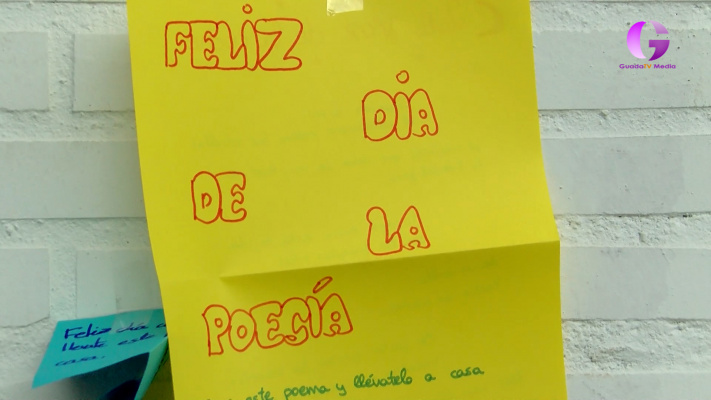 FELIZ
DÍA
DE
LA
POESÍA
este poema y llévatelo a casa
Feliz día
llévate este
casa.
GuadaTV Media